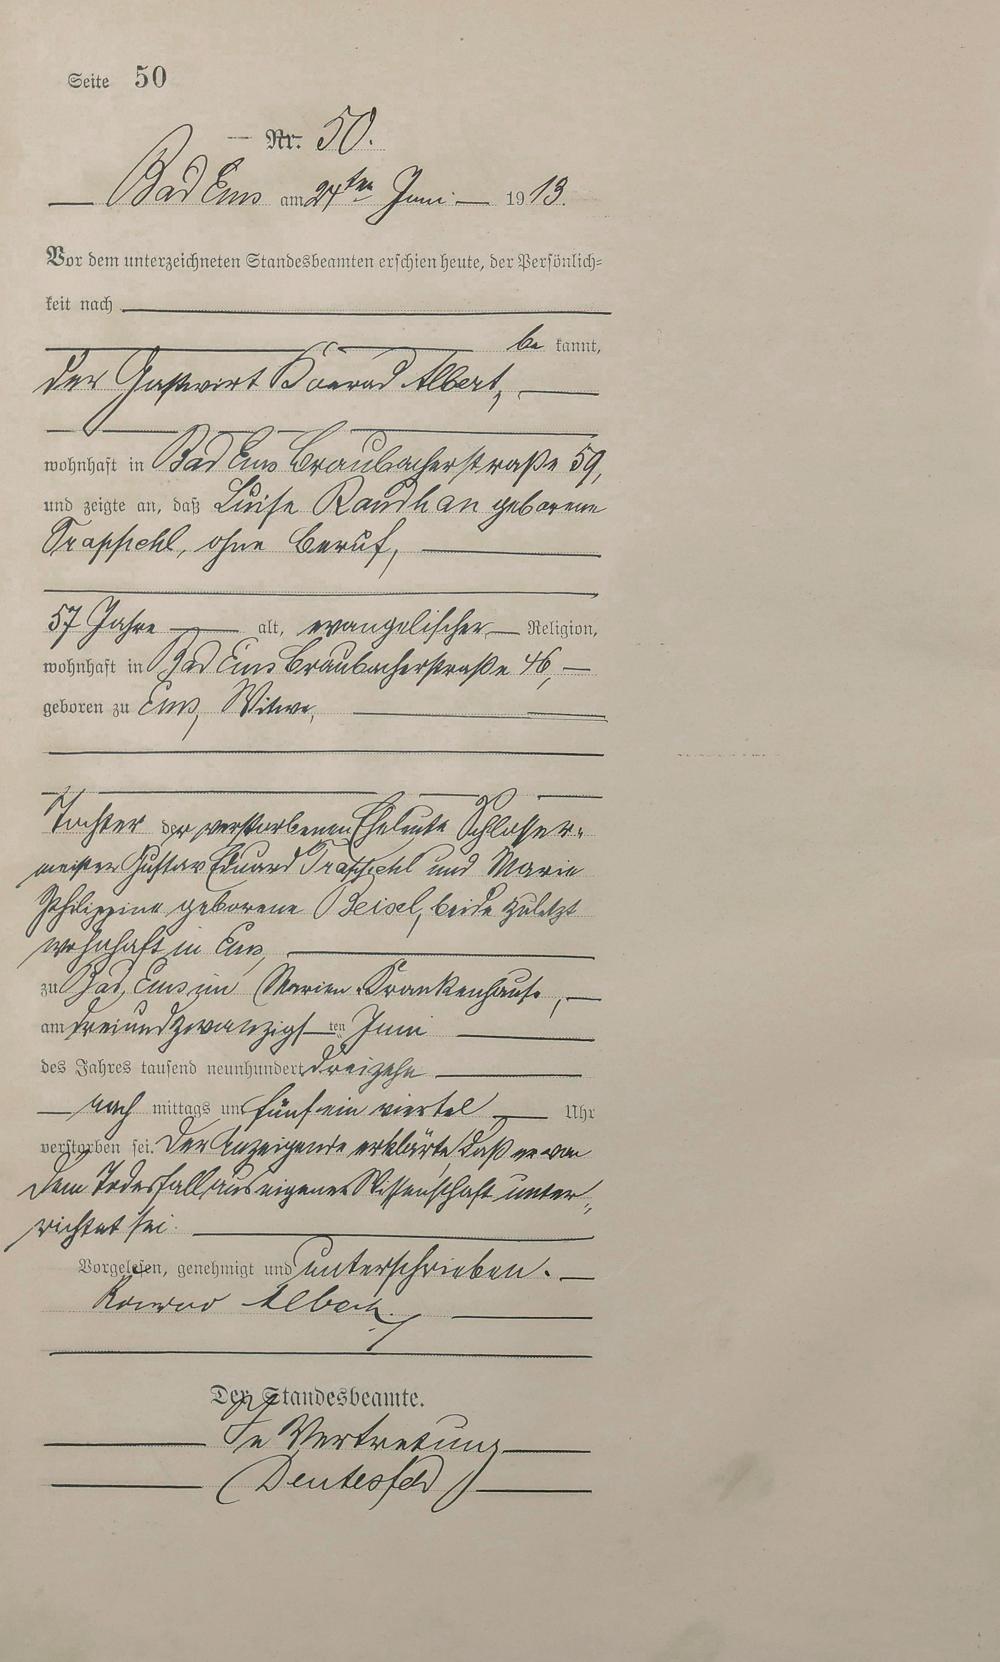 Seite 50
Nr. 50.
Bad Ems am 24ten Juni 1913.
Vor dem unterzeichneten Standesbeamten erschien heute, der Persönlich=
keit nach
be kannt,
der Gastwirt Konrad Albert,
wohnhaft in Bad Ems Braubacherstraße 59,
und zeigte an, daß Luise geborene
ohne Beruf,
57 Jahre alt, evangelischer Religion,
wohnhaft in Bad Ems Braubacherstraße 46,
geboren zu Ems, Witwe,
Tochter der verstorbenen Eheleute Schlosser-
meister Gustav Eduard und Marie
Philippine geborene Beisel, beide zuletzt
wohnhaft in Ems,
zu Bad Ems im Marien-Krankenhause,
am dreiundzwanzigsten Juni
des Jahres tausend neunhundert dreizehn
nach mittags um fünf ein viertel Uhr
verstorben sei. Der Anzeigende erklärte, daß er von
dem Todesfall aus eigener Wissenschaft unter„
richtet sei.
Vorgelesen, genehmigt und unterschrieben.
Konrad Albert
Der Standesbeamte.
In Vertretung